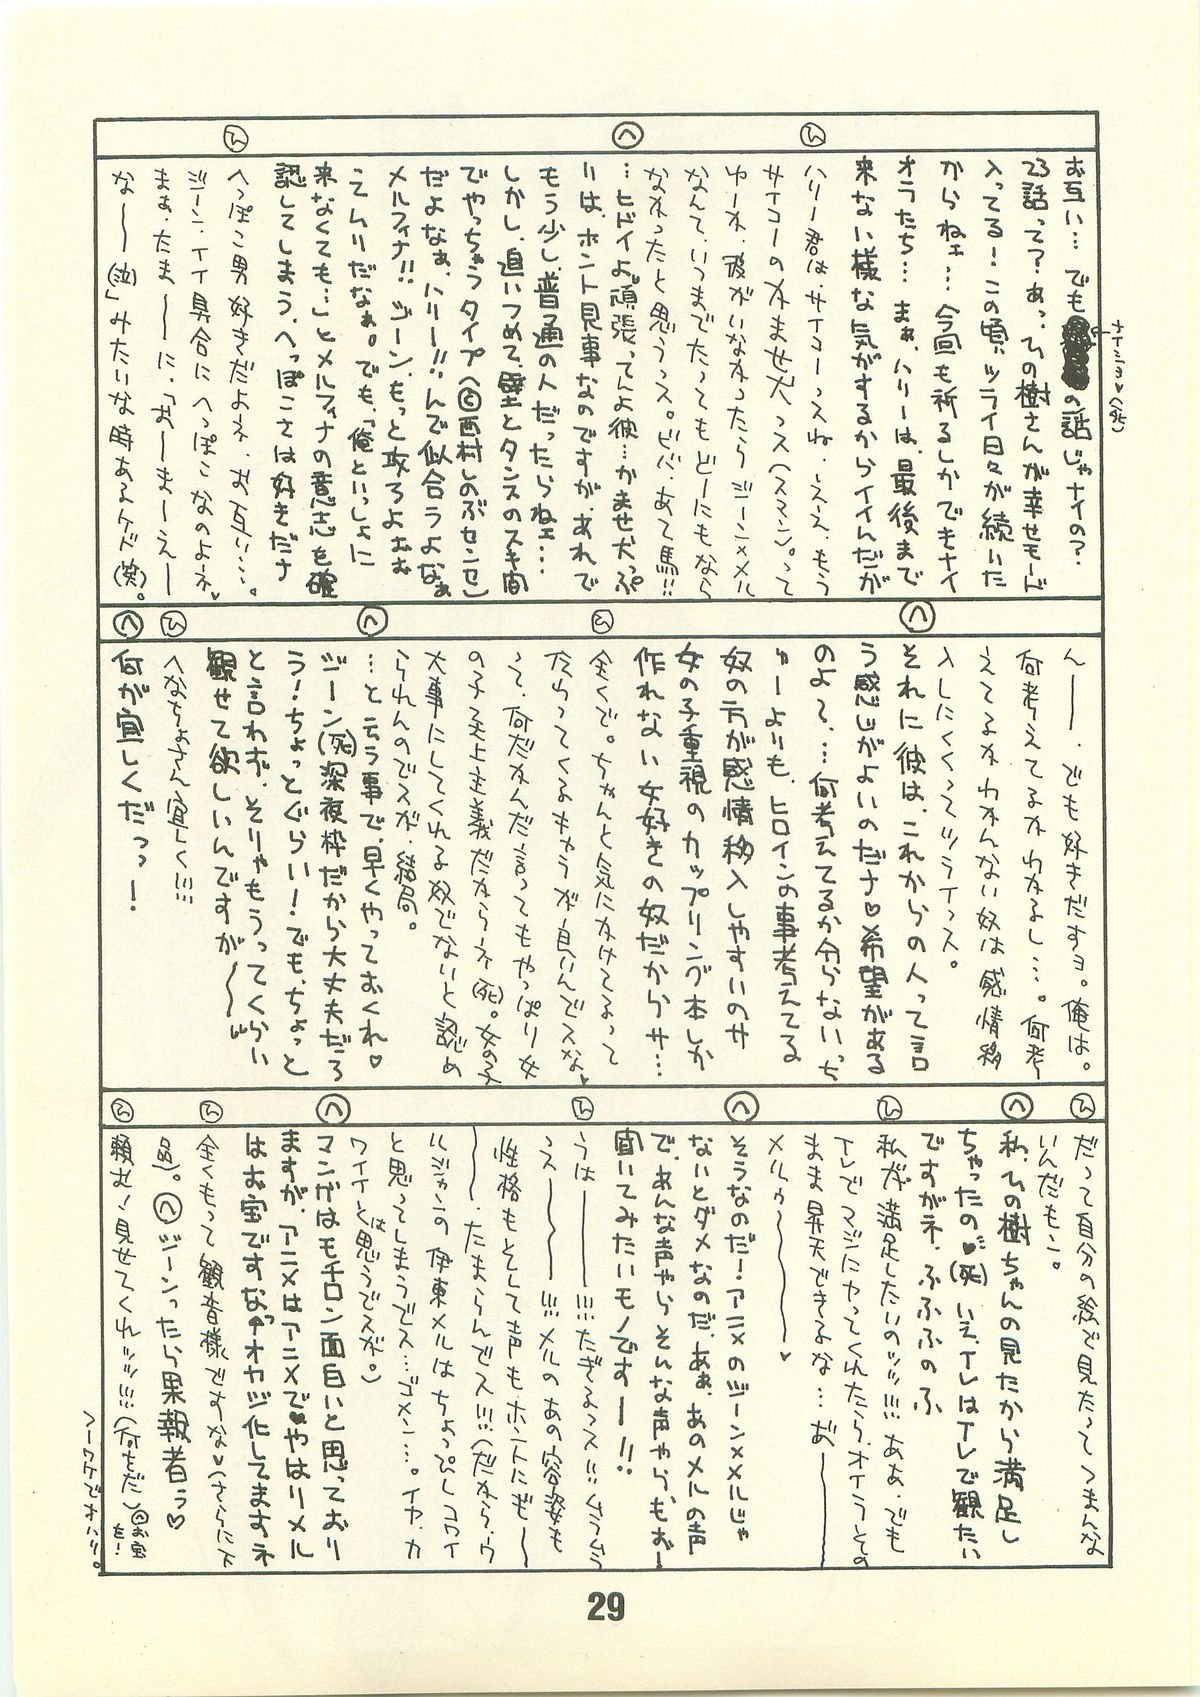 お互い…でも の話じゃナイの？
ナイショ♥(死)
23話って？あっ、ひの樹さんが幸せモード
入ってる！この頃、ツライ日々が続いた
からねェ…今回も祈るしかできナイ
オラたち…まぁ、ハリーは、最後まで
来ない様な気がするからイイんだが
ひ
ハリー君は、サイコーっスね。もう
サイコーのかませ犬っス(スマン)。って
ゆーか、彼がいなかったらジーン×メル
なんて、いつまでたってもどーにもなら
なかったと思うっス。ビバ、あて馬!!
へ
…ヒドイよ。頑張ってよ彼…かませ犬っぷ
りは、ホント見事なのですが、あれで
もう少し、普通の人だったらねェ…
しかし、追いつめて、壁とタンスのスキ間
でやっちゃうタイプ(©西村しのぶセンセ)
だよなぁ、ハリー!!んで似合うよなぁ
メルフィナ!!ジーン、もっと取ろよぉぉ
ってムリだなぁ。でも、「俺といっしょに
来なくても…」とメルフィナの意志を確
認してしまう、へっぽこさは好きだナ
ひ
へっぽこ男好きだよネ、お互い…。
ジーン、イイ具合にへっぽこなのよネ。
まぁ、たま〜〜に、「おーまーえー
な〜〜(泣)」みたいな時あるケド(笑)。
ん〜〜、でも好きだすョ。俺は。
何考えてるかわかるし…。何考
えてるかわかんない奴は感情移
入しにくくってツライっス。
へ
それに彼は、これからの人って言
う感じがよいのだナ♡希望がある
のよ〜、…何考えてるか分らないっち
ゅーよりも、ヒロインの事考えてる
奴の方が感情移入しやすいのサ
女の子重視のカップリング本しか
作れない女好きの奴だからサ…
ひ
全くで。ちゃんと気にかけてるって
伝わってくるキャラが良いんでスな♥
って、何だかんだ言ってもやっぱり女
の子至上主義だからネ(死)。女の子
大事にしてくれる奴でないと認め
られんのでスが、結局。
へ
…と云う事で、早くやっておくれ♥
ジーン(死)深夜枠だから大丈夫だろ
う！ちょっとぐらい！でも、ちょっと
と言わず、そりゃもうってくらい
観せて欲しいんですが〜〜〜
ひ
へなちょさん宜しく!!!
へ
何が宜しくだっっ！
ひ
だって自分の絵で見たってつまんな
いんだもん。
へ
私、ひの樹ちゃんの見たから満足し
ちゃったの♥(死)いえ、TVはTVで観たい
ですがネ、ふふふのふ
ひ
私が満足したいのッッ!!!ああ、でも
TVでマジにヤってくれたら、オイラその
まま昇天できるな…お〜〜〜
メルゥ〜〜〜♥
へ
そうなのだ！アニメのジーン×メルじゃ
ないとダメなのだ、あぁ、あのメルの声
で、あんな声やら、そんな声やらもぉー
聞いてみたいモノですーー!!
ひ
うは〜〜〜!!!たぎるっス!!!うううう
うス〜〜〜!!!メルのあの容姿も
性格もそして声もホントにもぉ〜
〜、たまらんでス!!!(だから、ウ
ルジャンの伊東メルはちょっぴしコワイ
と思ってしまうでス…ゴメン…。イヤ、カ
ワイイとは思うでスが。)
へ
マンガはモチロン面白いと思っており
ますが、アニメはアニメで♥やはりメル
はお宝ですなっ↑オヤジ化してますネ
ひ
全くもって観音様ですな♥(さらにオ
 )。
へ
ジーンったら果報者っ♡
ひ
頼む！見せてくれッッ!!!(何をだ)©お宝
を！
〜ワケでオハリ。
29